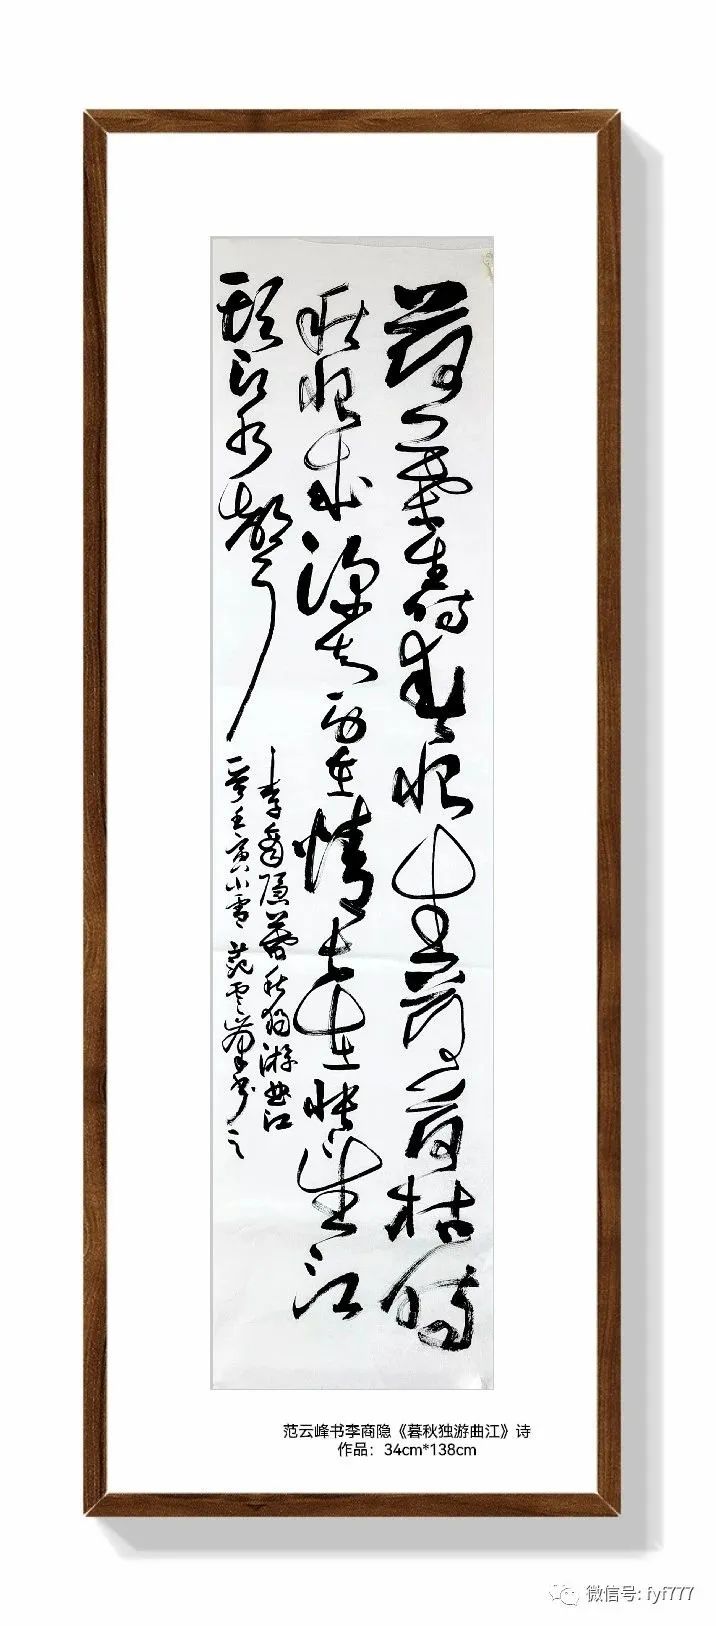 荷叶生时春恨生荷叶枯时
秋恨成深知身在情长在怅望江
头江水声
李商隐暮秋独游曲江
岁壬寅小雪范云峰书之
范云峰书李商隐《暮秋独游曲江》诗
作品：34cm*138cm
微信号: fyf777